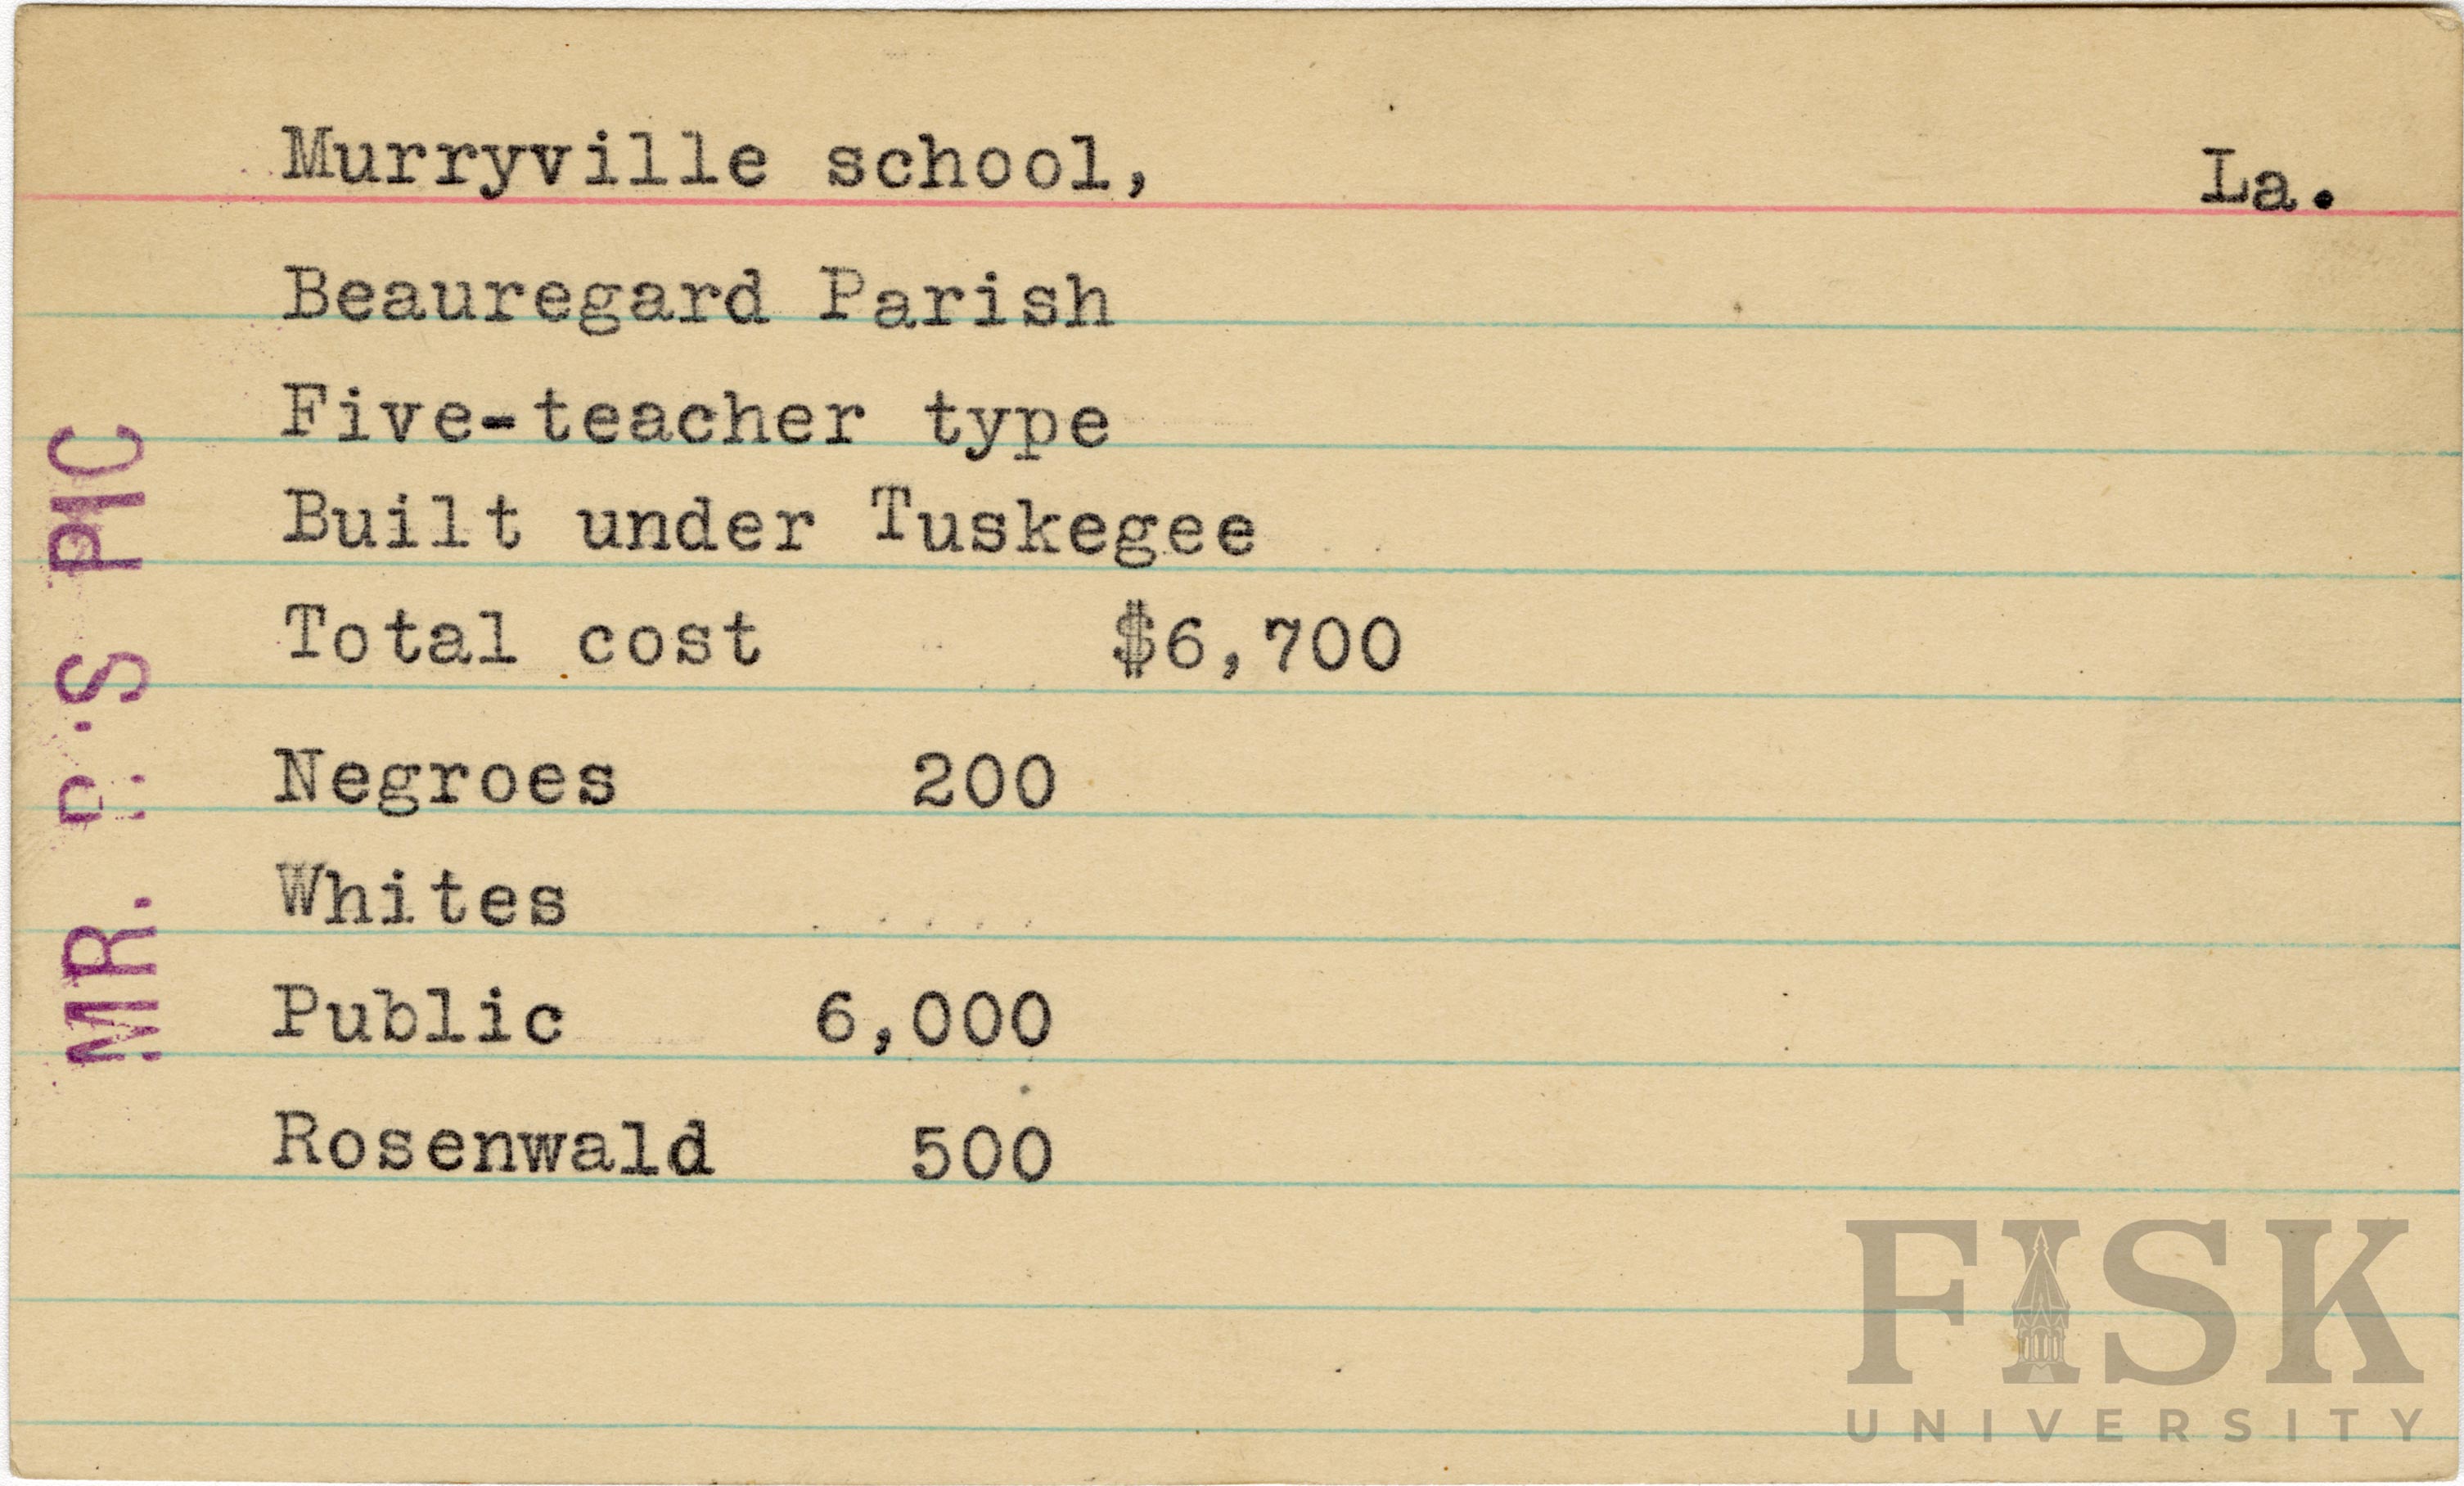 Murryville school, La.
Beauregard Parish
Five-teacher type
Built under Tuskegee
Total cost $6,700
Negroes 200
Whites
Public 6,000
Rosenwald 500
MR. S PIC
FISK
UNIVERSITY